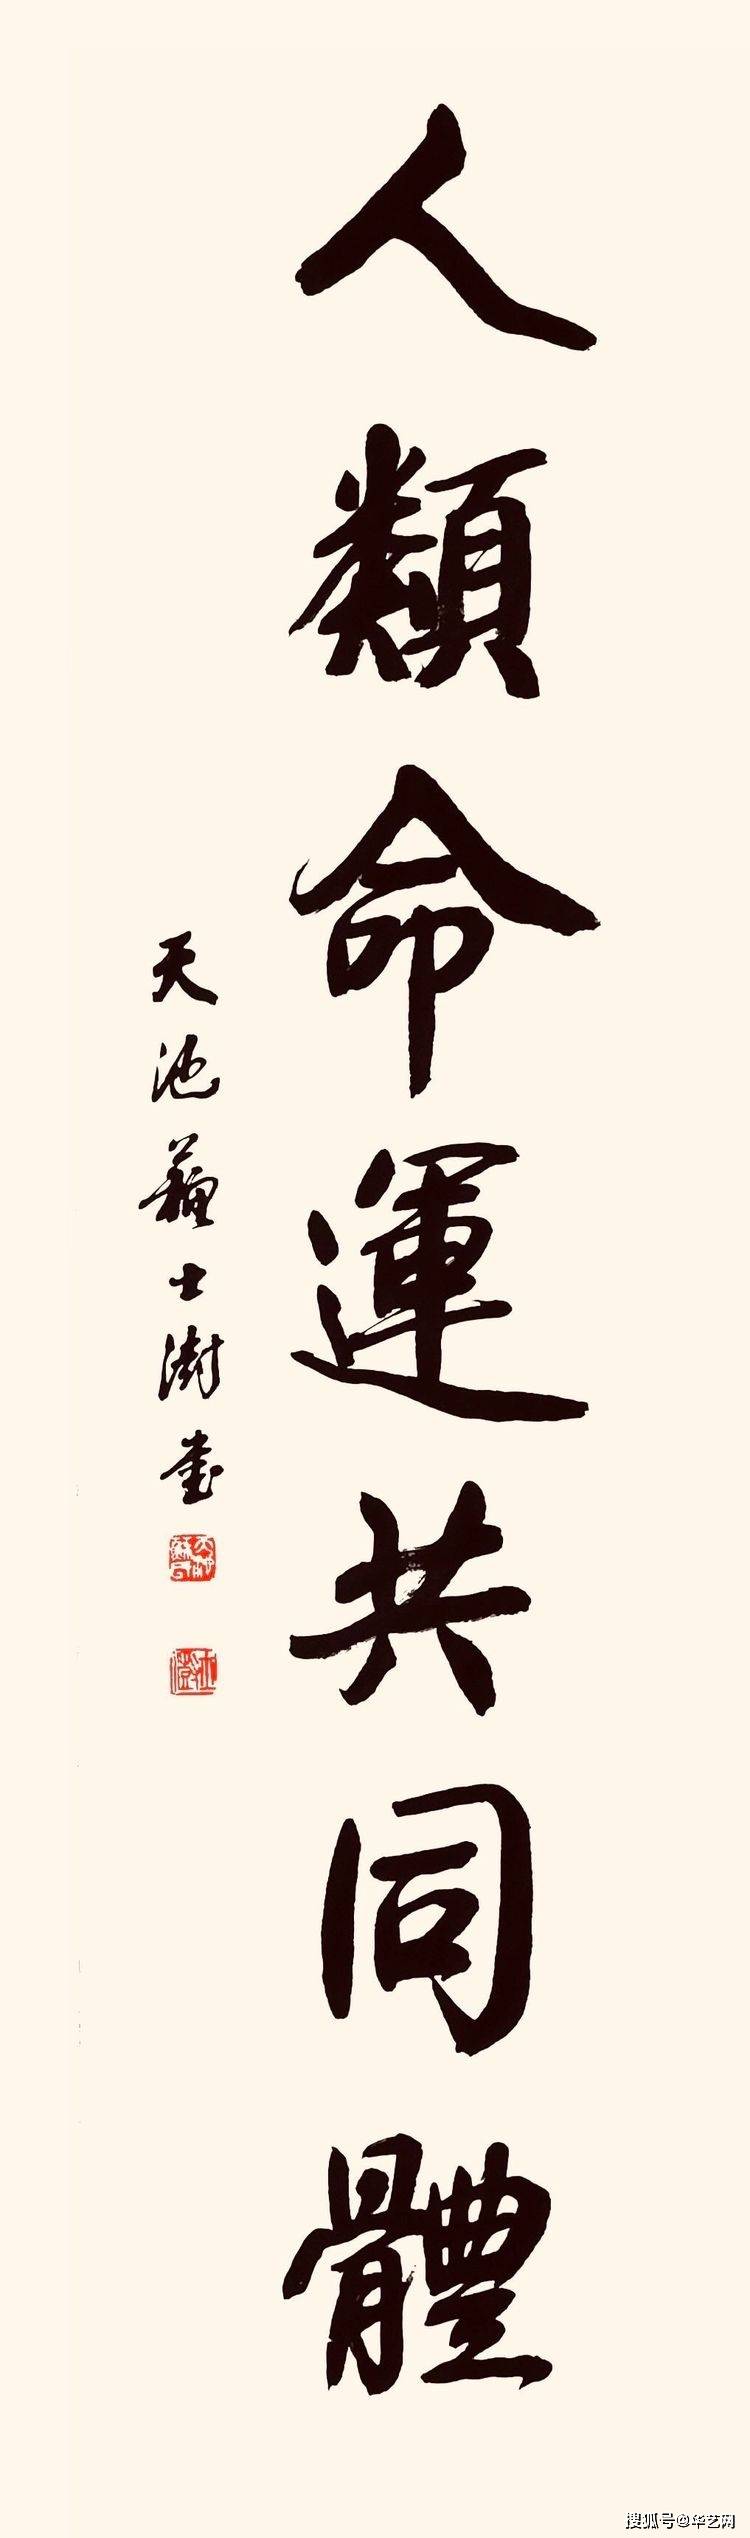 人類命運共同體
天池蘇士澍書
搜狐号@华艺网